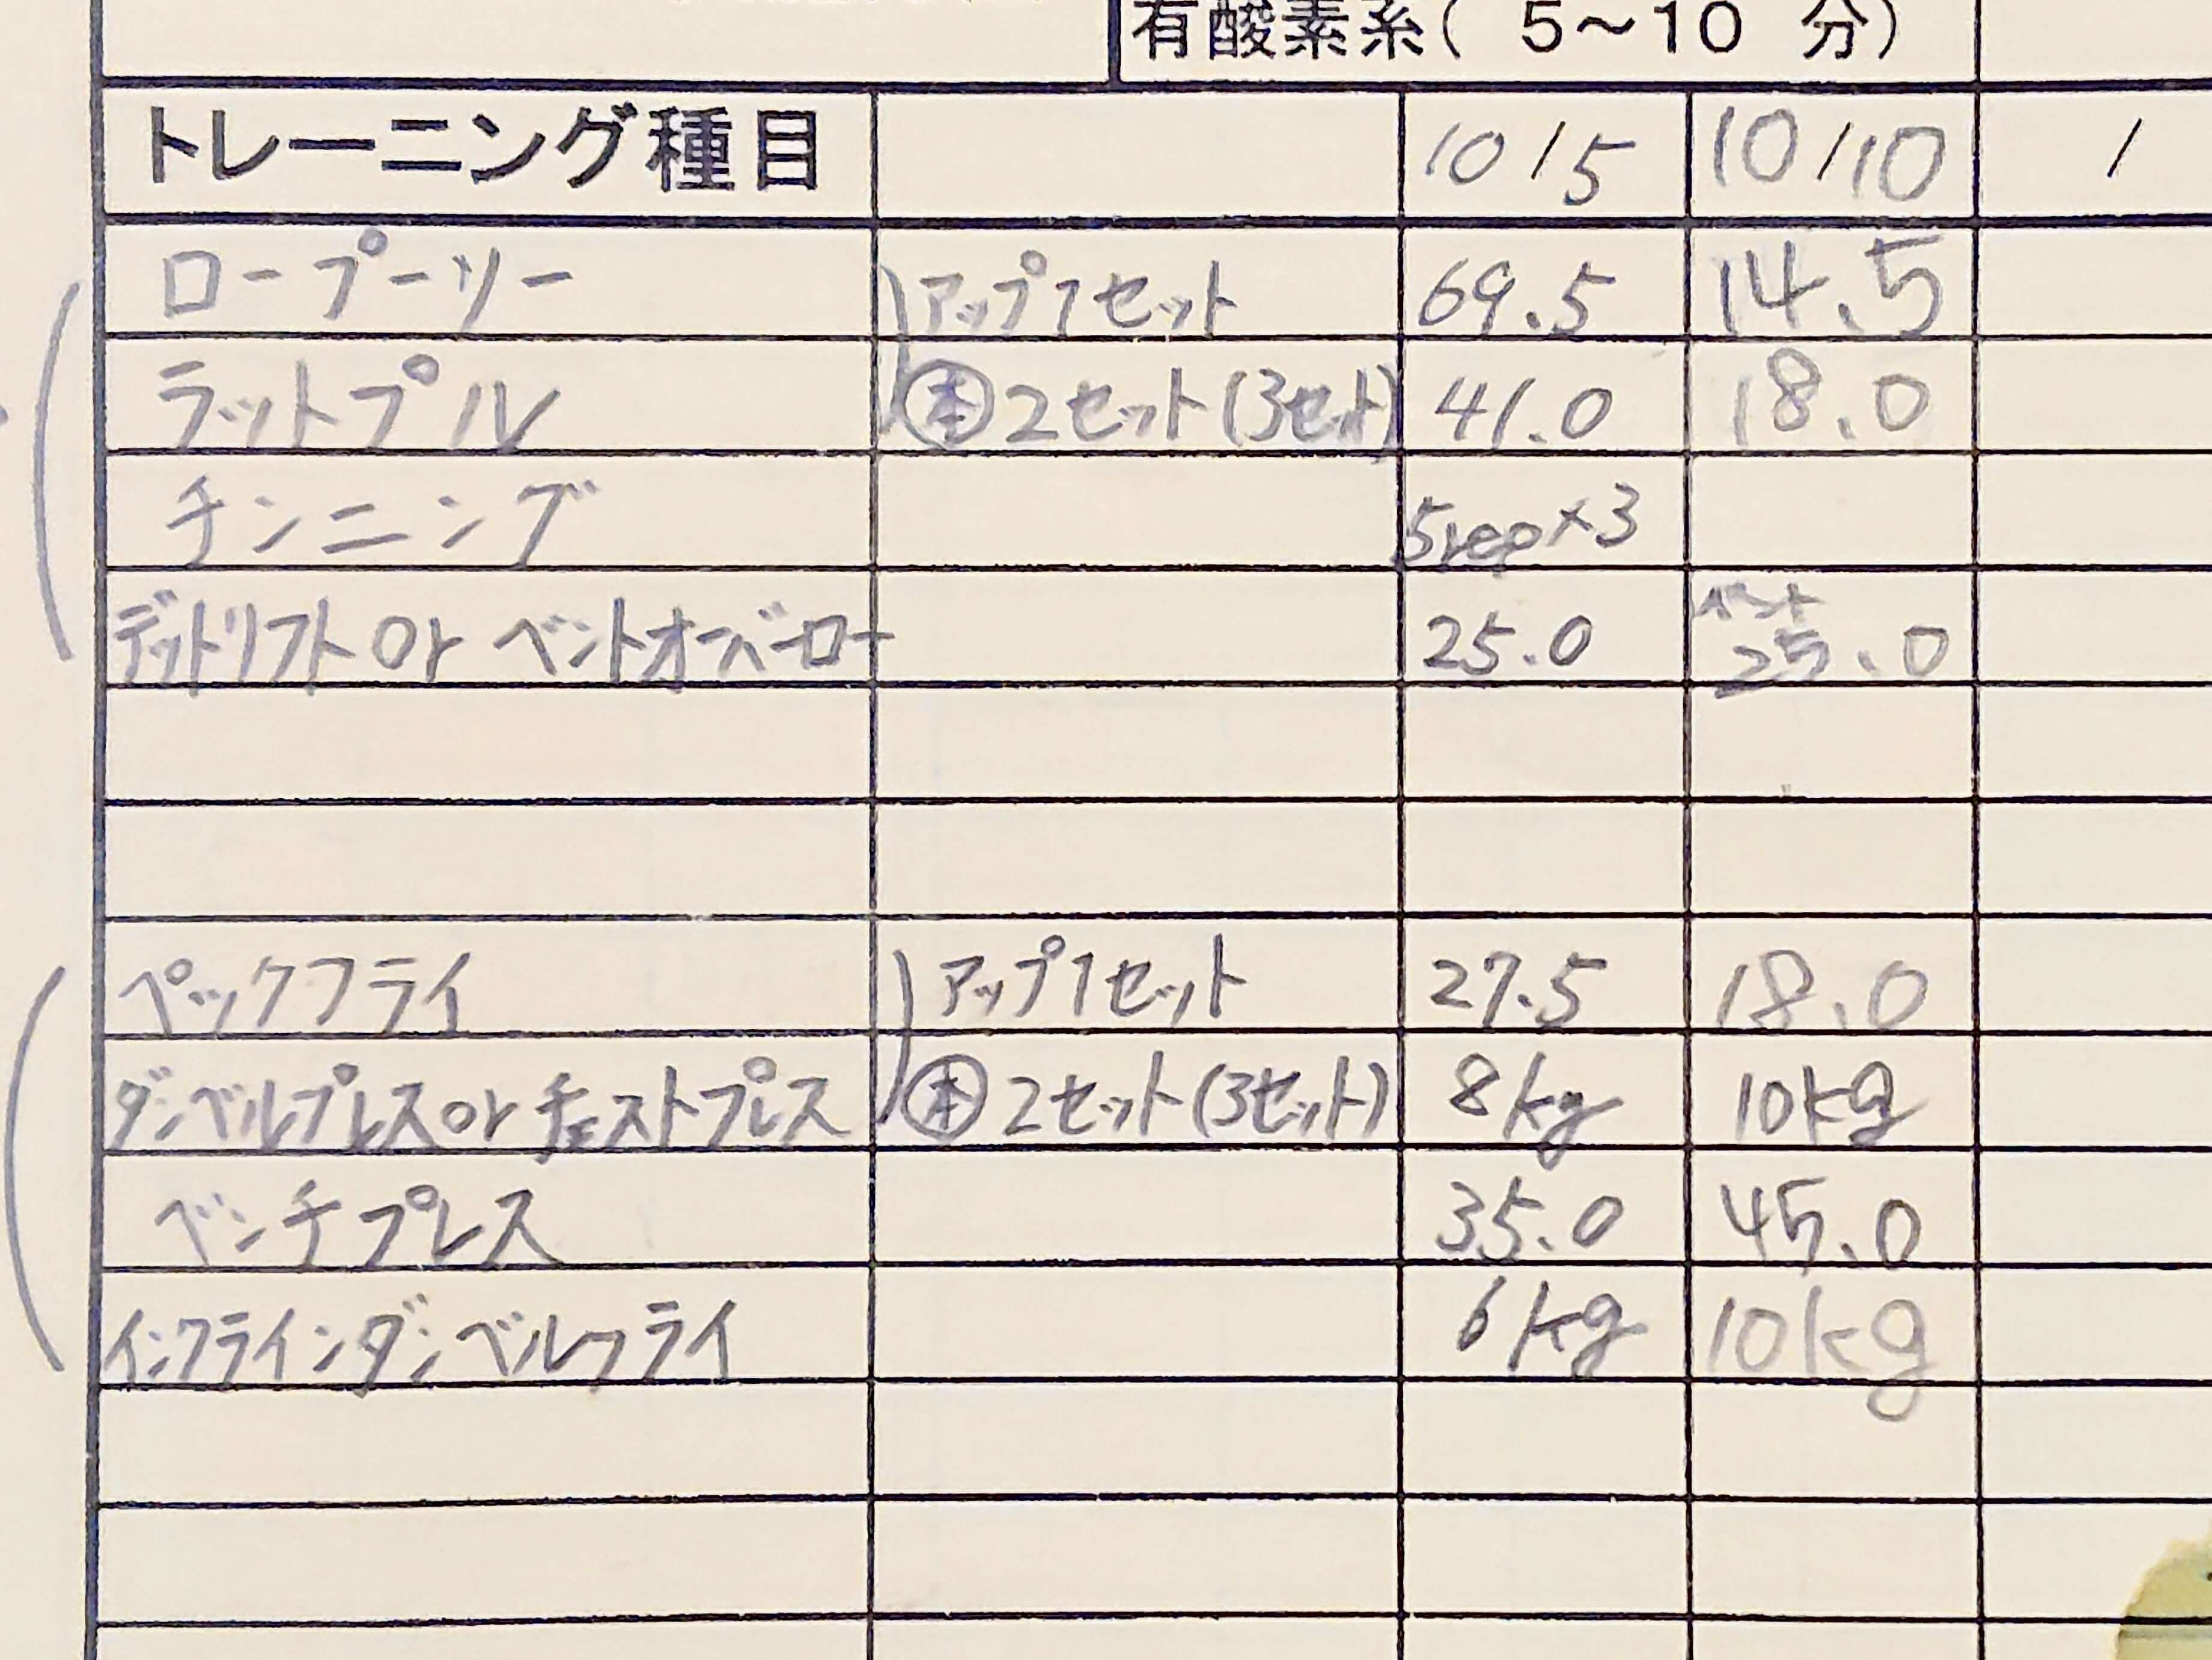 有酸素系( 5～10 分)
トレーニング種目 10/5 10/10 /
ロープーリー アップ1セット 69.5 14.5
ラットプル 本 2セット(3セット) 41.0 18.0
チンニング 5rep×3
デットリフト or ベントオーバーロー 25.0 ベント 25.0
ペックフライ アップ1セット 27.5 18.0
ダンベルプレス or チェストプレス 本 2セット(3セット) 8kg 10kg
ベンチプレス 35.0 45.0
インクラインダンベルフライ 6kg 10kg